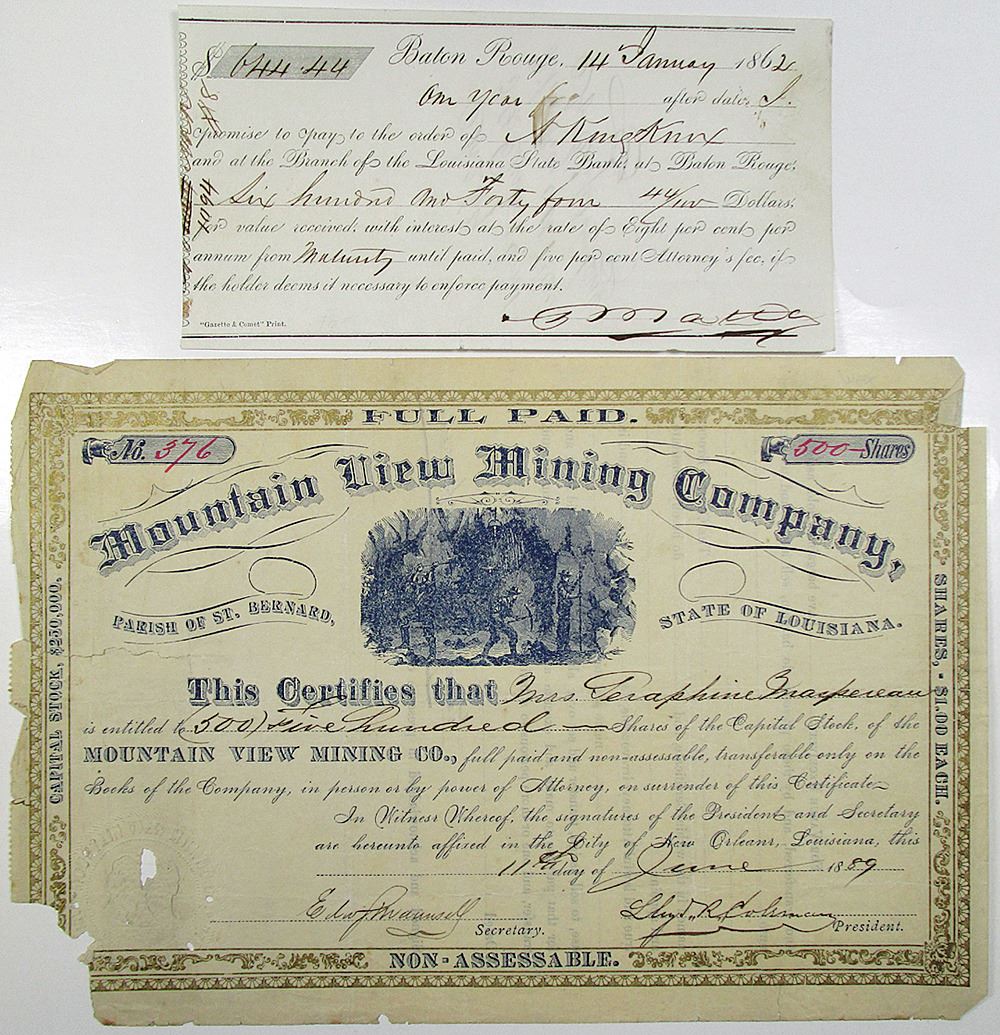 $ 644.44 Baton Rouge, 14 January 1862
One Year after date, I.
promise to pay to the order of A King Knox
and at the Branch of the Louisiana State Bank, at Baton Rouge,
Six hundred and Forty four 44/100 Dollars,
for value received, with interest at the rate of Eight per cent per
annum from Maturity until paid, and five per cent Attorney's fee, if
the holder deems it necessary to enforce payment.
"Gazette & Comet" Print.
FULL PAID.
No. 376
500 Shares
Mountain View Mining Company,
PARISH OF ST. BERNARD,
STATE OF LOUISIANA.
CAPITAL STOCK, $250,000.
SHARES, $1.00 EACH.
This Certifies that Mrs. Seraphine Maspereau
is entitled to (500) Five hundred Shares of the Capital Stock, of the
MOUNTAIN VIEW MINING CO., full paid and non-assessable, transferable only on the
Books of the Company, in person or by power of Attorney, on surrender of this Certificate
In Witness Whereof, the signatures of the President and Secretary
are hereunto affixed in the City of New Orleans, Louisiana, this
11th day of June 1889
Lloyd R. Coleman
Secretary.
President.
NON-ASSESSABLE.